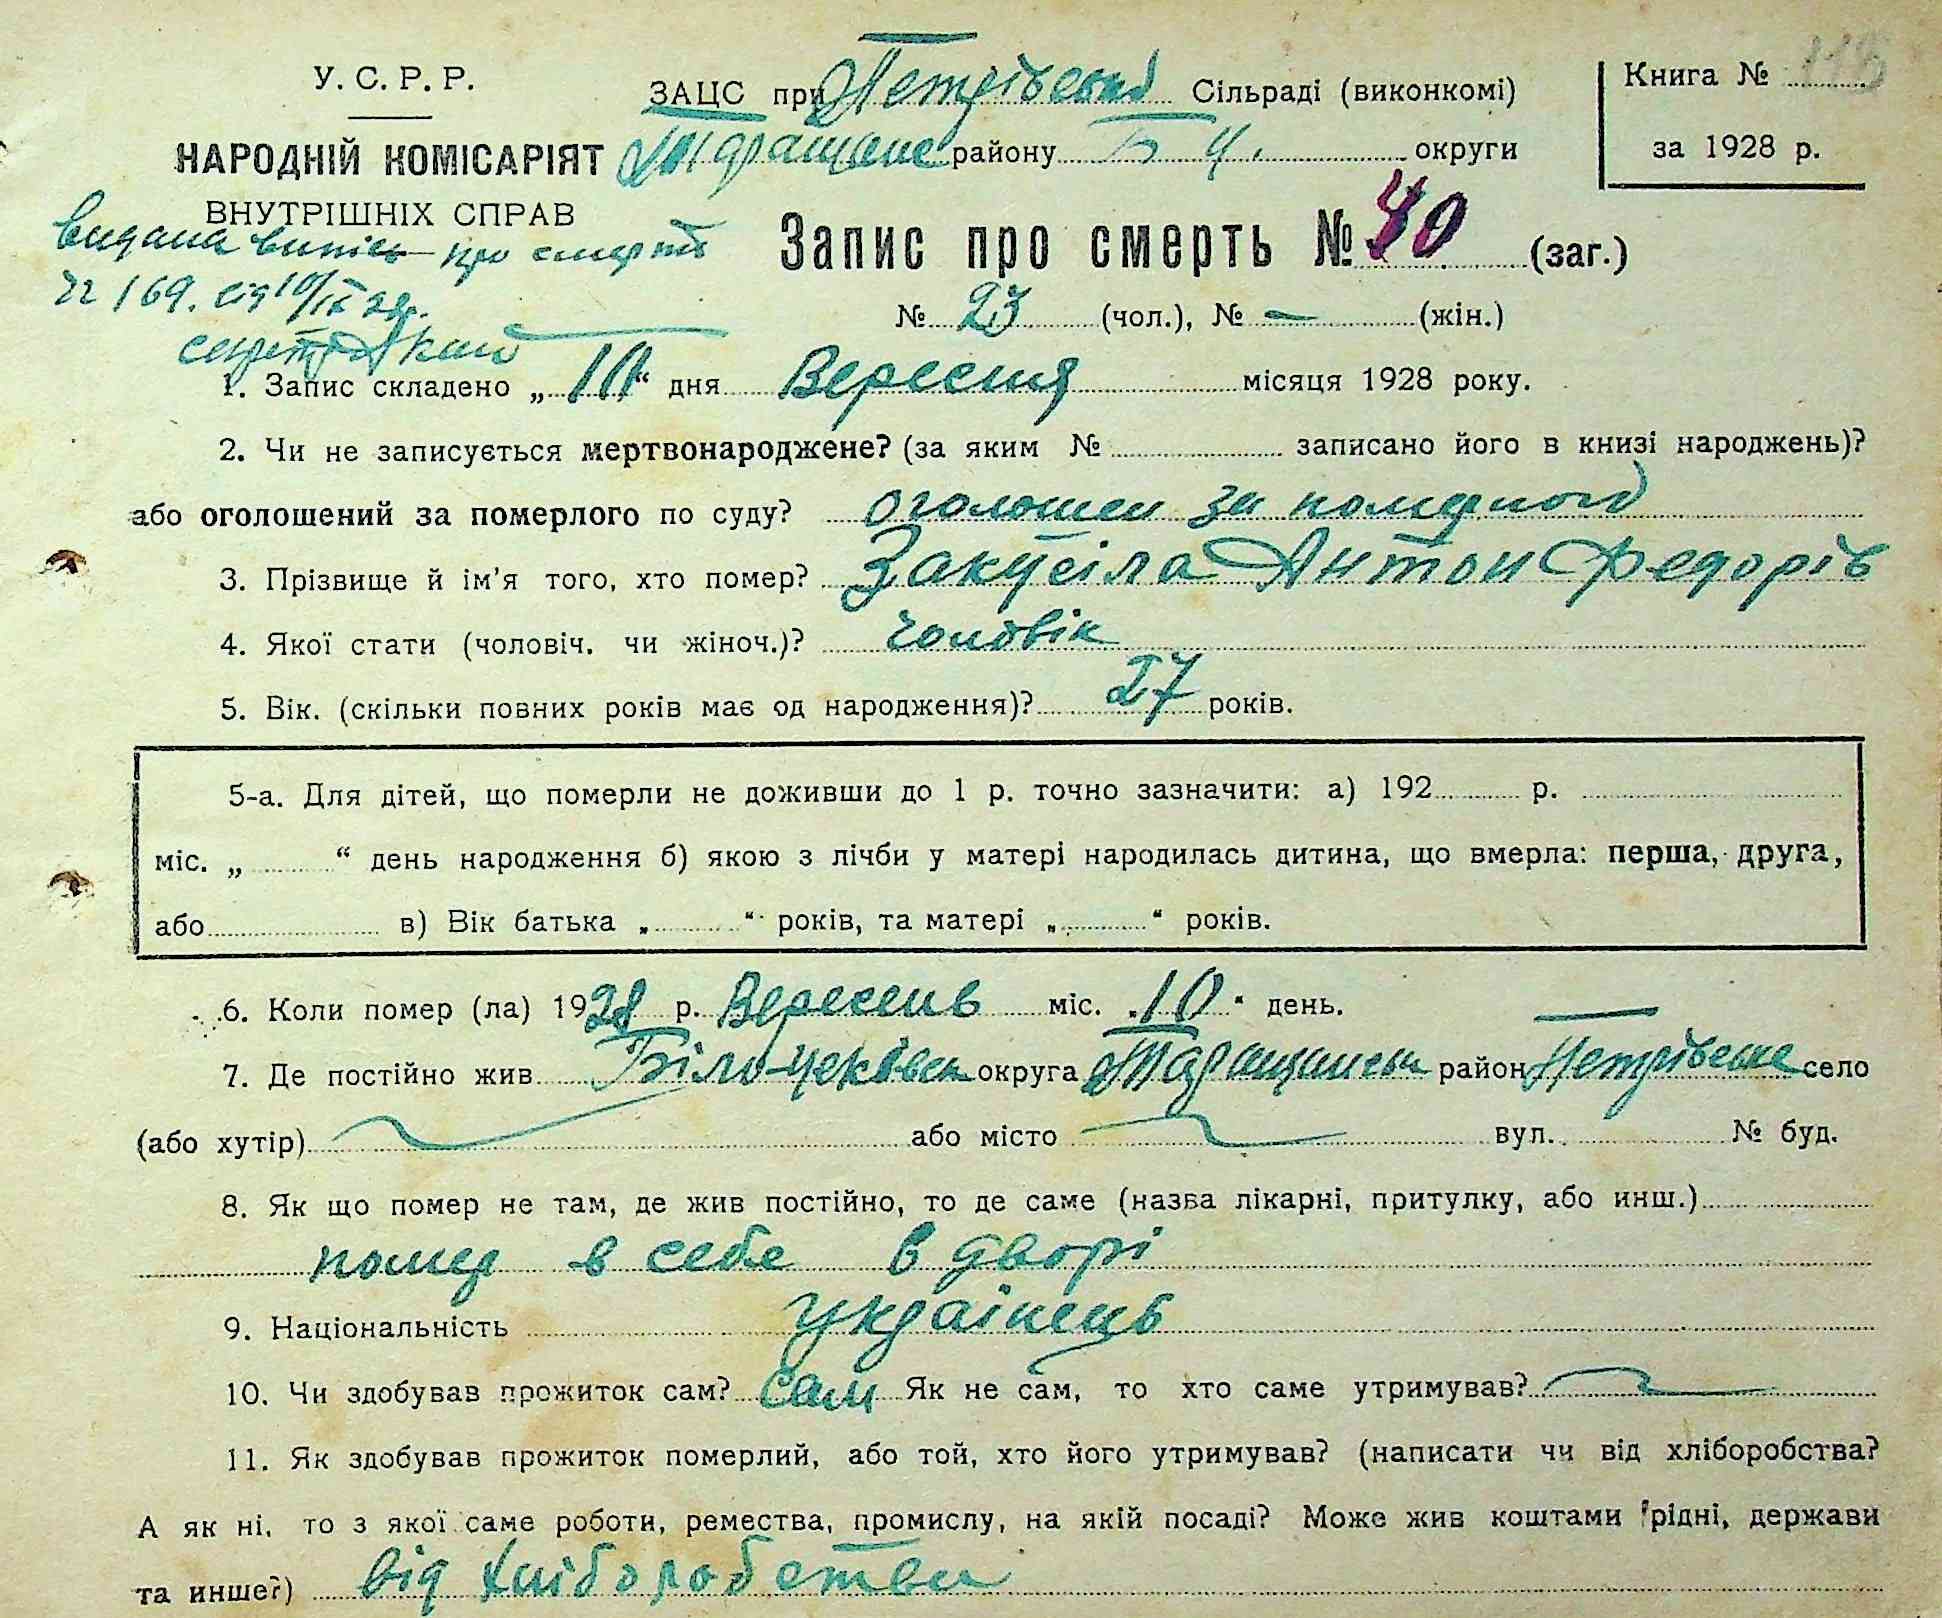 У. С. Р. Р.
ЗАЦС при Петрівській Сільраді (виконкомі)
Книга №
НАРОДНІЙ КОМІСАРІЯТ
Таращанс району Б Ц. округи
за 1928 р.
ВНУТРІШНІХ СПРАВ
видана випись про смерть
Запис про смерть № 40 (заг.)
№ 169. від 10/IX 28р.
№ 23 (чол.), № — (жін.)
секретар
1. Запис складено „10“ дня Вересня місяця 1928 року.
2. Чи не записується мертвонароджене? (за яким № записано його в книзі народжень)?
або оголошений за померлого по суду? оголошен за померлого
3. Прізвище й ім’я того, хто помер? Закусіла Антон Федорів
4. Якої стати (чоловіч. чи жіноч.)? чоловік
5. Вік. (скільки повних років має од народження)? 27 років.
5-а. Для дітей, що померли не доживши до 1 р. точно зазначити: а) 192 р.
міс. „ “ день народження б) якою з лічби у матері народилась дитина, що вмерла: перша, друга,
або в) Вік батька „ “ років, та матері „ “ років.
6. Коли помер (ла) 1928 р. Вересень міс. „10“ день.
7. Де постійно жив Біло-церківськ округа Таращанськ район Петрівське село
(або хутір) або місто вул. № буд.
8. Як що помер не там, де жив постійно, то де саме (назва лікарні, притулку, або инш.)
помер в себе в дворі
9. Національність українець
10. Чи здобував прожиток сам? сам Як не сам, то хто саме утримував?
11. Як здобував прожиток померлий, або той, хто його утримував? (написати чи від хліборобства?
А як ні, то з якої саме роботи, ремества, промислу, на якій посаді? Може жив коштами рідні, держави
та инше?) від хліборобства